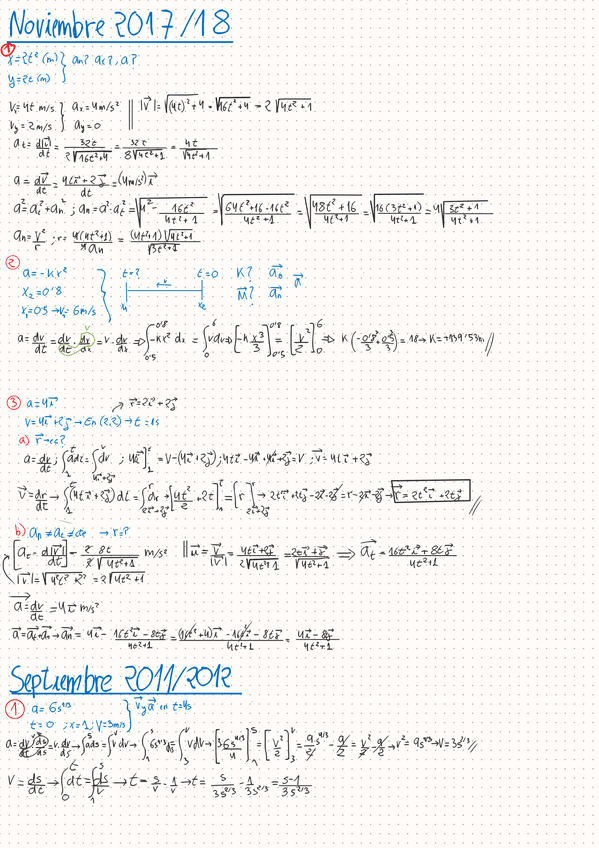 Noviembre 2017/18
① x=2t² (m) } an? at?, a?
y=2t (m)
Vx=4t m/s } ax=4m/s² || |v⃗|=√((4t)²+4) = √(16t²+4) = 2√(4t²+1)
Vy=2m/s } ay=0
at = d|v⃗|/dt = 32t/(2√(16t²+4)) = 32t/(8√(4t²+1)) = 4t/√(4t²+1)
a = dv⃗/dt = (4t i⃗+2 j⃗)/dt = (4m/s²) i⃗
a²=at²+an² ; an=a²-at² = √(4² - 16t²/(4t²+1)) = √((64t²+16-16t²)/(4t²+1)) = √((48t²+16)/(4t²+1)) = √(16(3t²+1)/(4t²+1)) = 4√((3t²+1)/(4t²+1))
an = v²/r ; r = 4(4t²+1)/an = (4t²+1)√(4t²+1)/√(3t²+1)
② a=-kx² t=? t=0 K? a⃗t a⃗
x2=0'8 v x1 x2 M⃗? a⃗n
x1=0'5→v1=6m/s
a = dv/dt = dv/dt · dx/dx = v · dv/dx ⇒ ∫0'5 0'8 -kx² dx = ∫0 6 vdv → [-k x³/3]0'5 0'8 = [v²/2]0 6 ⇒ K(-0'8³/3 + 0'5³/3) = 18 → K=-139'53m
③ a=4i⃗ → r⃗=2i⃗+2j⃗
v=4i⃗+2j⃗→En (2,2)→t=1s
a) r⃗→ec?
a = dv/dt ; ∫1 t adt = ∫4i+2j v dv ; 4t i⃗]1 t = v-(4i⃗+2j⃗) ; 4t i⃗-4i⃗+4i⃗+2j⃗=v ; v⃗=4t i⃗+2j⃗
v⃗ = dr⃗/dt → ∫1 t (4t i⃗+2j⃗) dt = ∫2i+2j r dr → [4t²/2 + 2t]1 t = [r]2i+2j r → 2t²i⃗+2tj⃗-2i⃗-2j⃗=r-2i⃗-2j⃗→ r⃗ = 2t²i⃗+2tj⃗
b) an ≠ at ≠ cte → r=?
[at = d|v⃗|/dt] = 2·8t/(2√(4t²+1)) m/s² || u⃗ = v⃗/|v⃗| = (4t i⃗+2j⃗)/(2√(4t²+1)) = (2t i⃗+j⃗)/√(4t²+1) ⇒ a⃗t = (16t²i⃗+8t j⃗)/(4t²+1)
|v⃗|=√(4²t²+2²) = 2√(4t²+1)
a⃗ = dv/dt = 4i⃗ m/s²
a⃗=a⃗t+a⃗n→a⃗n = 4i⃗ - (16t²i⃗-8tj⃗)/(4t²+1) = ((16t²+4)i⃗-16t²i⃗-8tj⃗)/(4t²+1) = (4i⃗-8j⃗)/(4t²+1)
Septiembre 2011/2012
① a=6s^1/3 } v⃗ y a⃗ en t=4s
t=0 ; x=1 ; V=3m/s
a = dv/dt · ds/ds = v · dv/ds → ∫ads = ∫v dv → ∫1 s 6s^1/3 ds = ∫3 v vdv → [3·6s^4/3/4]1 s = [v²/2]3 v = 9/2 s^4/3 - 9/2 = v²/2 - 9/2 → v²=9s^4/3→v=3s^2/3
V = ds/dt → ∫0 t dt = ∫1 s ds/v → t = s/v - 1/v → t = s/3s^2/3 - 1/3s^2/3 = (s-1)/3s^2/3